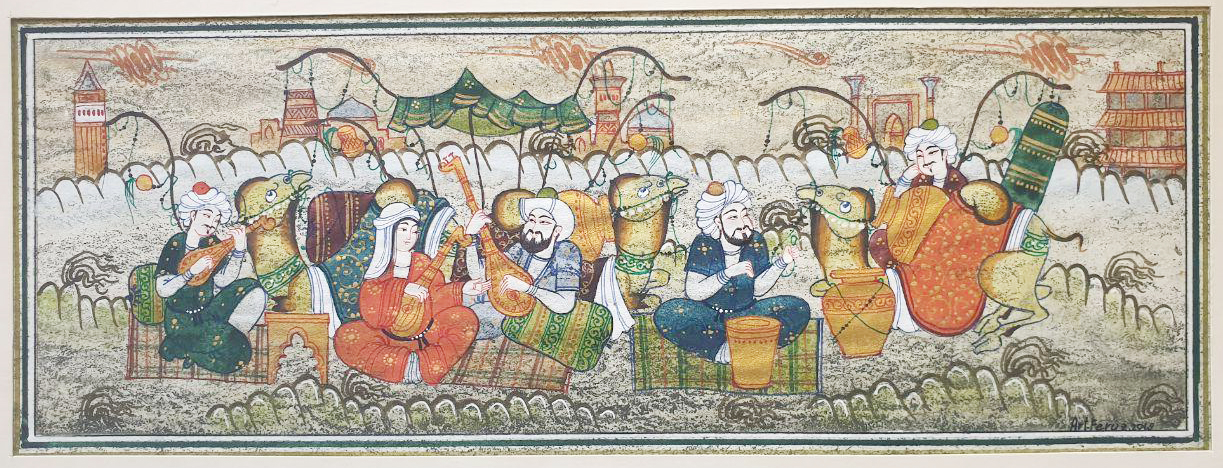 Art Feruz 2018